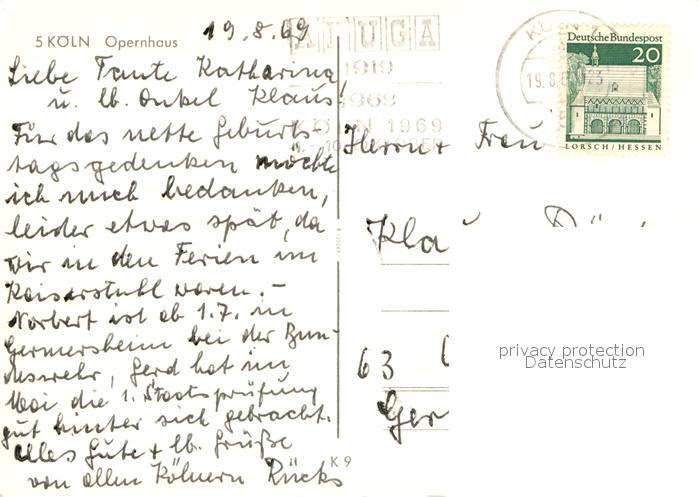 5 KÖLN Opernhaus
19.8.69
Liebe Tante Katharina
u. lb. Onkel Klaus!
Für das nette Geburts-
tagsgedenken möchte
ich mich bedanken,
leider etwas spät, da
wir in den Ferien im
Kaiserstuhl waren. –
Norbert ist ab 1.7. in
Germersheim bei der Bun-
deswehr, Gerd hat im
Mai die 1. Staatsprüfung
gut hinter sich gebracht.
Alles Gute + lb. Grüße
von allen Kölnern Rücks
K 9
ANUGA
1919
1969
KÖLN 1969
19.8.6
23
Deutsche Bundespost
20
LORSCH/HESSEN
Herrn + Frau
Kla
63
Ger
privacy protection
Datenschutz